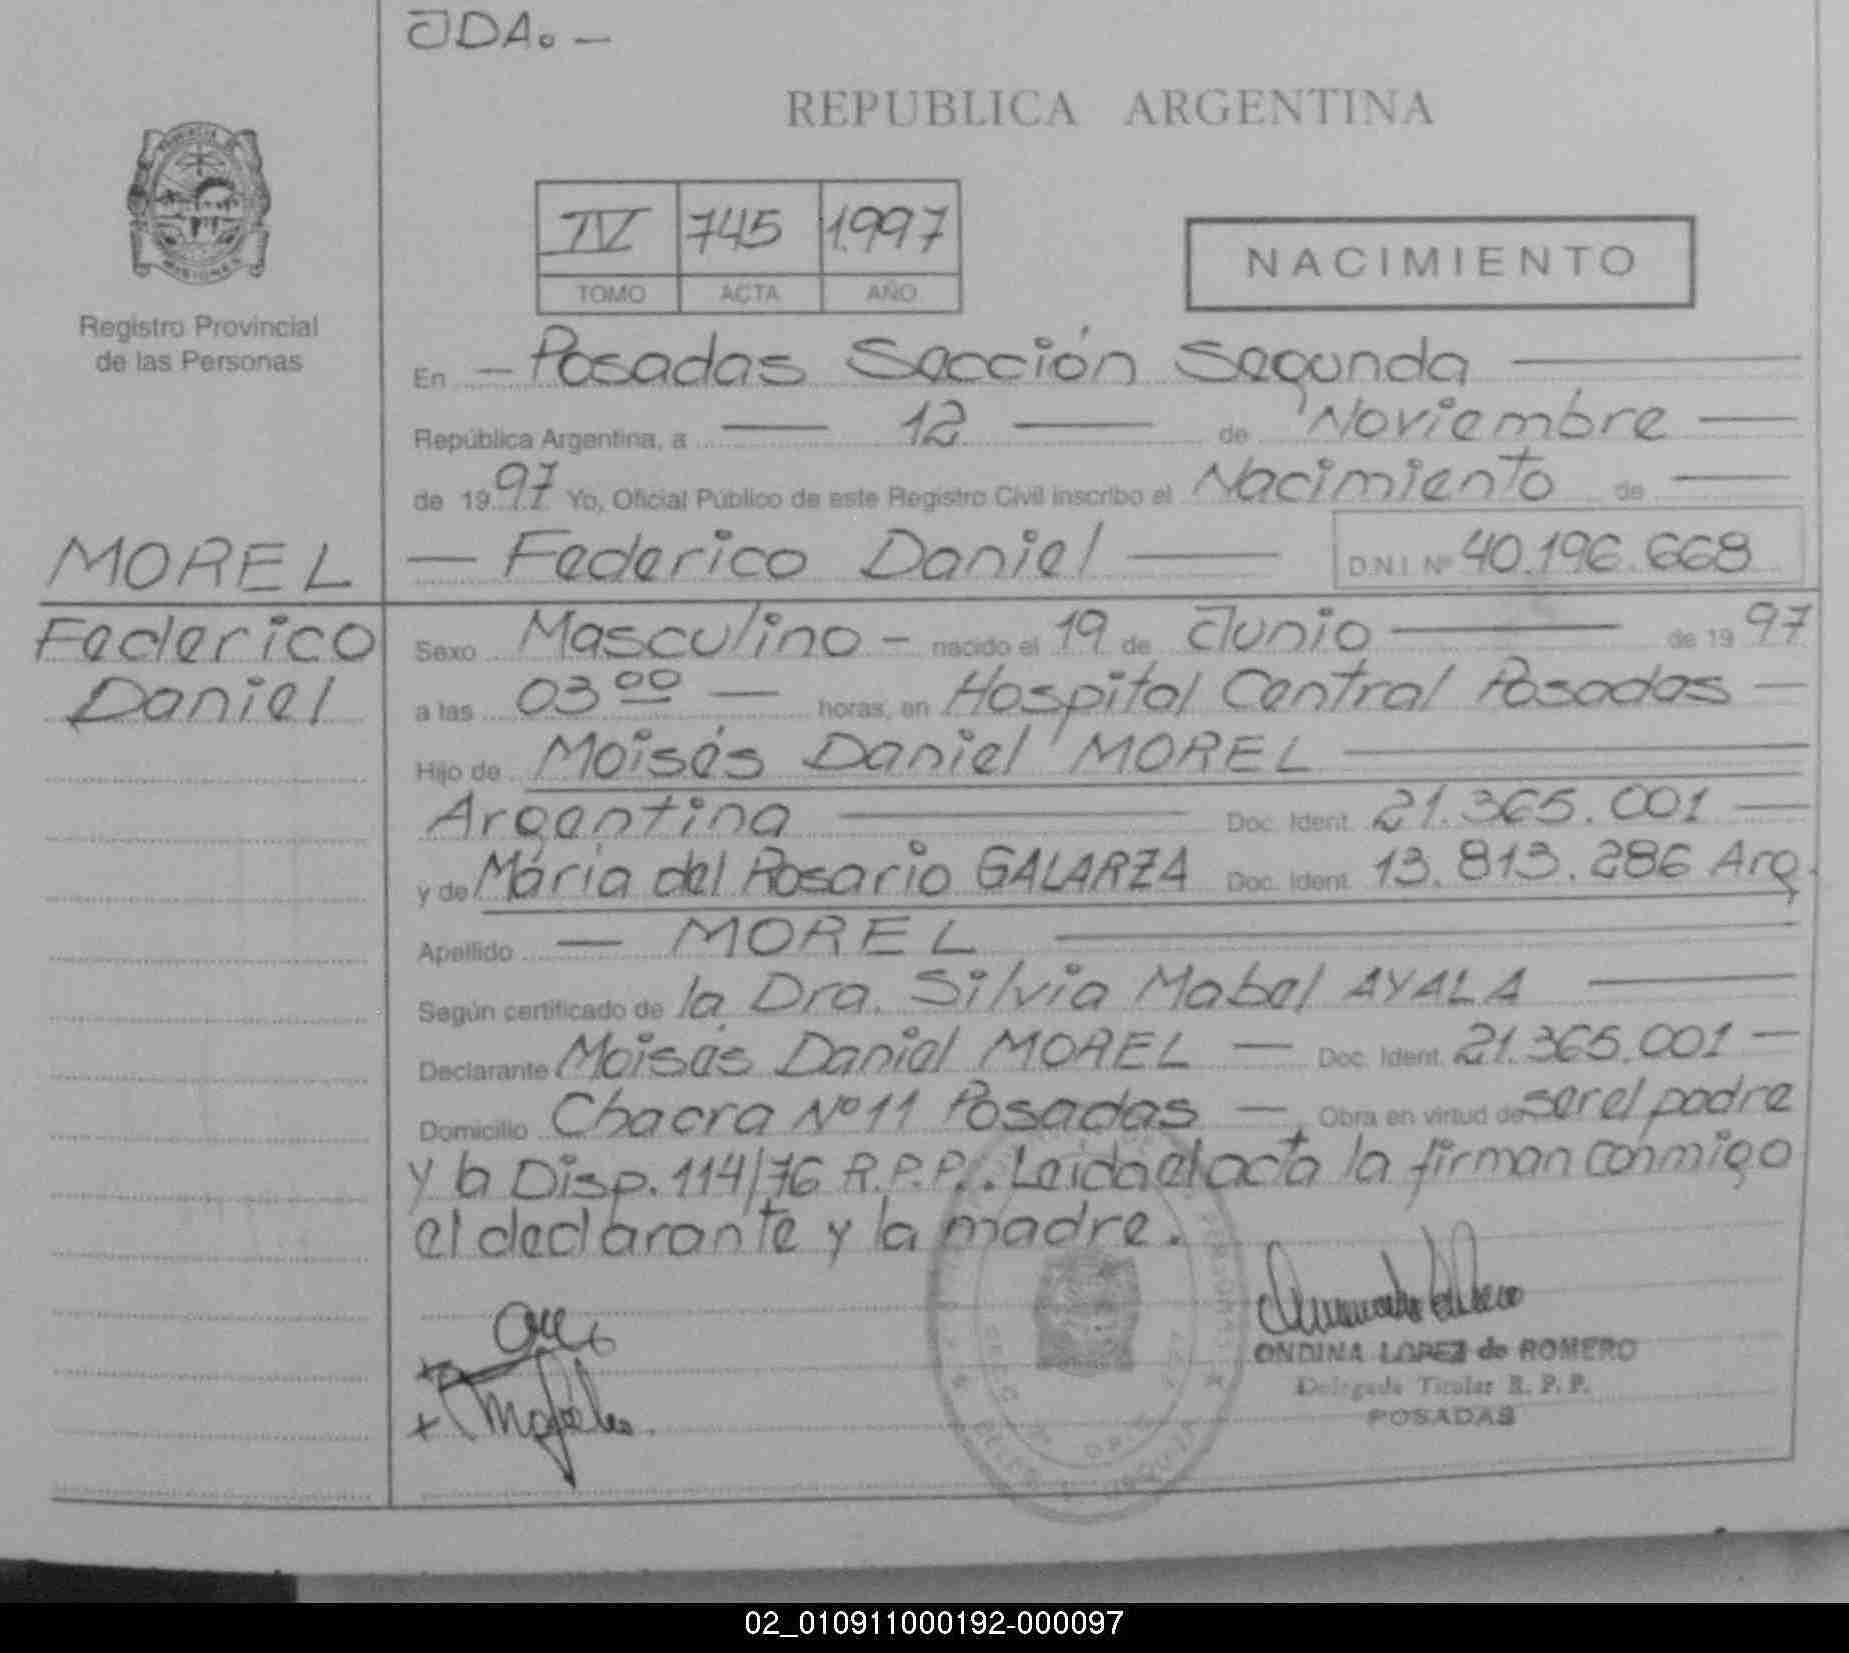 JDA. -
REPUBLICA ARGENTINA
IV 745 1997
TOMO ACTA AÑO
NACIMIENTO
MISIONES
Registro Provincial
de las Personas
En - Posadas Sección Segunda
República Argentina, a 12 de Noviembre
de 1997 Yo, Oficial Público de este Registro Civil inscribo el Nacimiento de
MOREL
Federico Daniel D.N.I. Nº 40.196.668
Federico
Daniel
Sexo Masculino - nacido el 19 de Junio de 1997
a las 03 00 horas, en Hospital Central Posadas
Hijo de Moisés Daniel MOREL
Argentina Doc. Ident. 21.365.001
y de María del Rosario GALARZA Doc. Ident. 13.813.286 Arg.
Apellido MOREL
Según certificado de la Dra. Silvia Mabel AYALA
Declarante Moisés Daniel MOREL Doc. Ident. 21.365.001
Domicilio Chacra Nº 11 Posadas Obra en virtud de ser el padre
y la Disp. 114/76 R.P.P. Leida el acta la firman conmigo
el declarante y la madre.
ONDINA LOPEZ de ROMERO
Delegada Titular R. P. P.
POSADAS
02_010911000192-000097